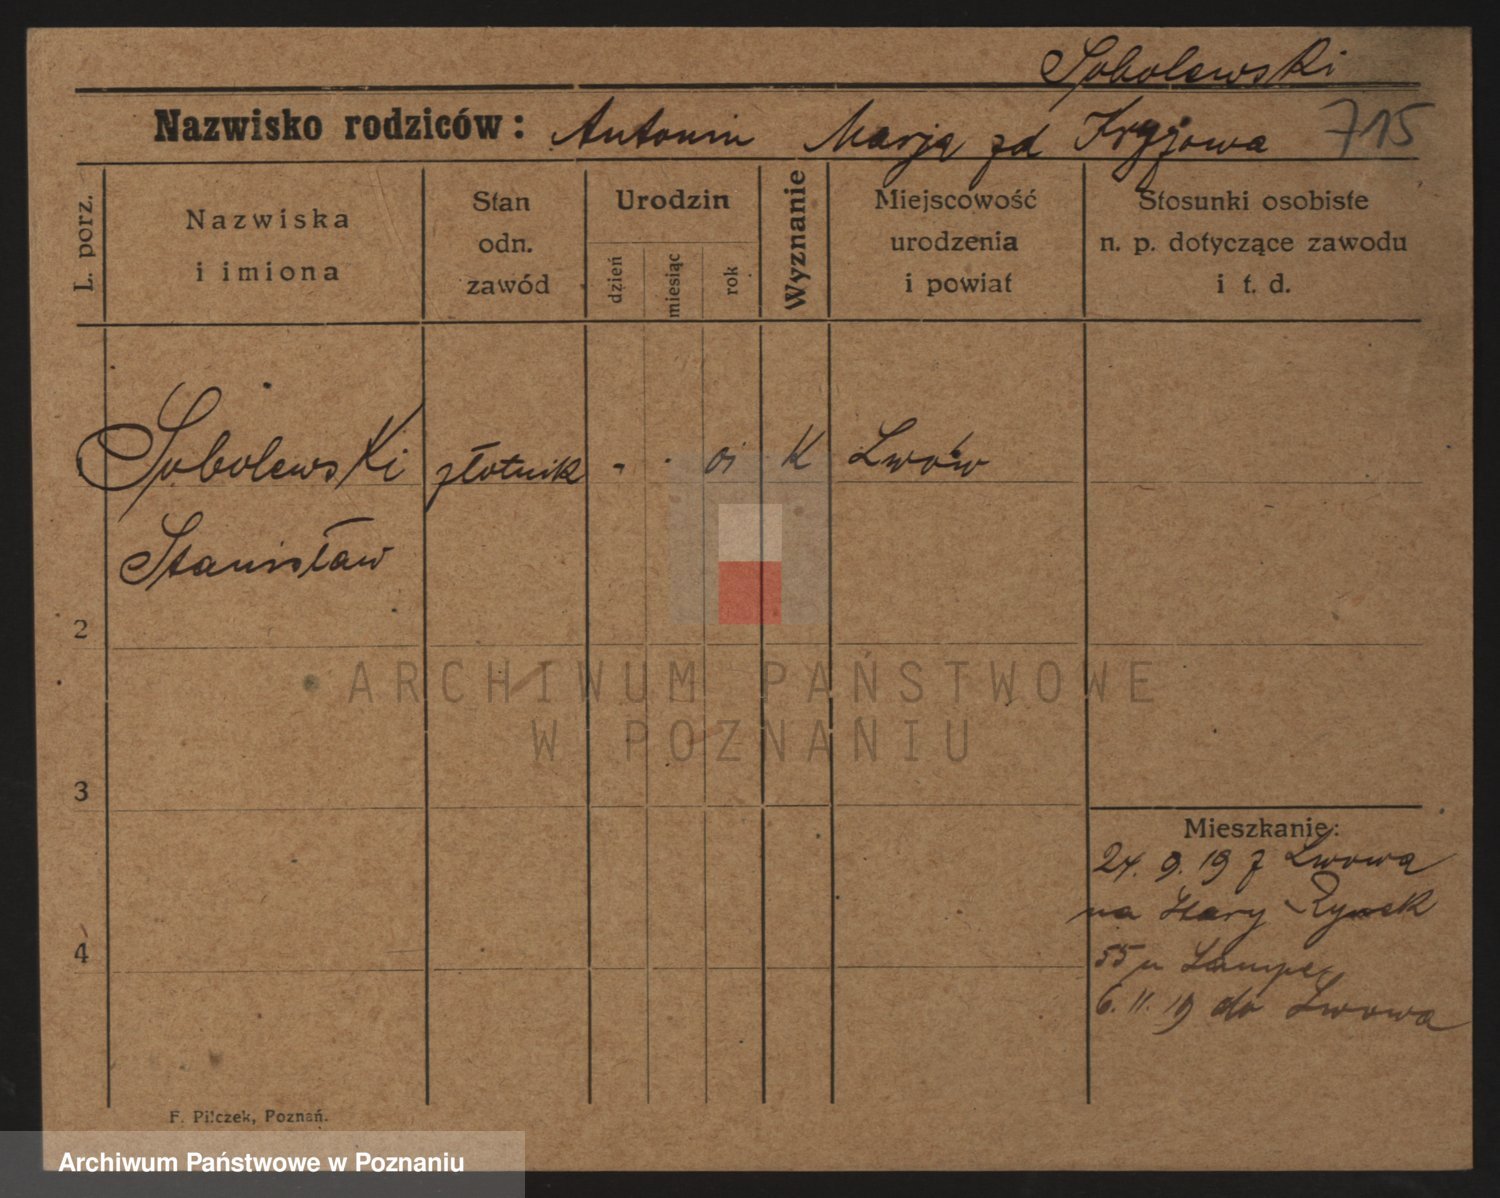 Sobolewski
Nazwisko rodziców: Antonin Marja zd 715
L. porz.
Nazwiska
i imiona
Stan
odn.
zawód
Urodzin
dzień
miesiąc
rok
Wyznanie
Miejscowość
urodzenia
i powiat
Stosunki osobiste
n. p. dotyczące zawodu
i t. d.
1 Sobolewski złotnik - - 01 K Lwów
Stanisław
2
3
4
Mieszkanie:
24. 9. 19 z Lwowa
na Stary Rynek
55 u Lampe
6. 11. 19 do Lwowa
F. Pilczek, Poznań.
ARCHIWUM PAŃSTWOWE
W POZNANIU
Archiwum Państwowe w Poznaniu